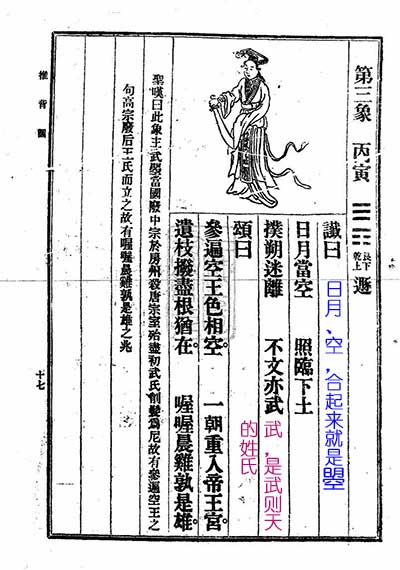 第三象 丙寅 ䷠ 艮下乾上 遯
讖曰
日月當空 照臨下土
撲朔迷離 不文亦武
頌曰
參遍空王色相空。 一朝重入帝王宮。
遺枝撥盡根猶在。 喔喔晨雞孰是雄。
聖嘆曰此象主武曌當國廢中宗於房州殺唐宗室殆盡初武氏削髮為尼故有參遍空王之
句高宗廢后王氏而立之故有喔喔晨雞孰是雄之兆
推背圖
十七
日月、空，合起来就是曌
武，是武则天
的姓氏